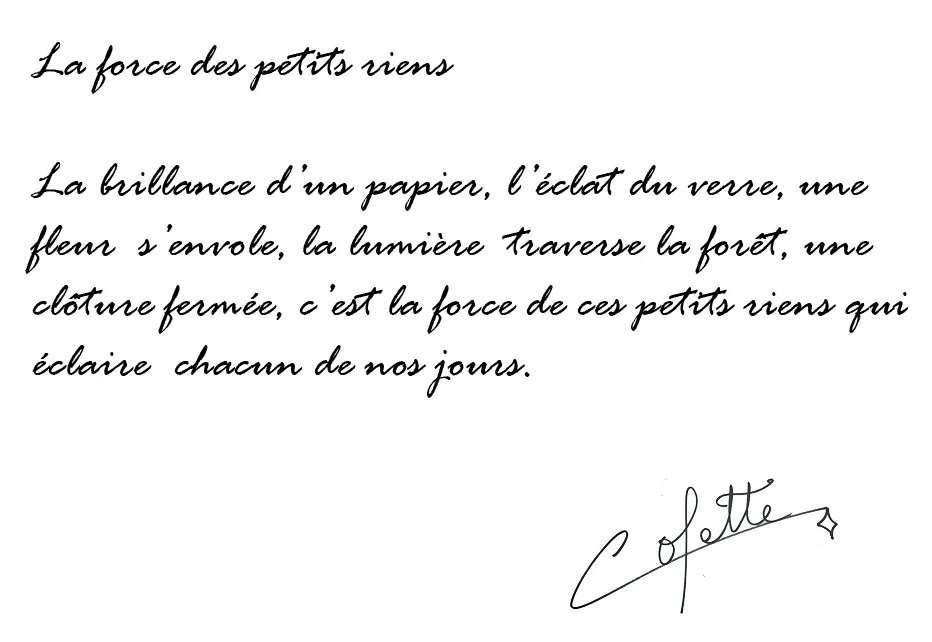 La force des petits riens
La brillance d'un papier, l'éclat du verre, une
fleur s'envole, la lumière traverse la forêt, une
clôture fermée, c'est la force de ces petits riens qui
éclaire chacun de nos jours.
Colette